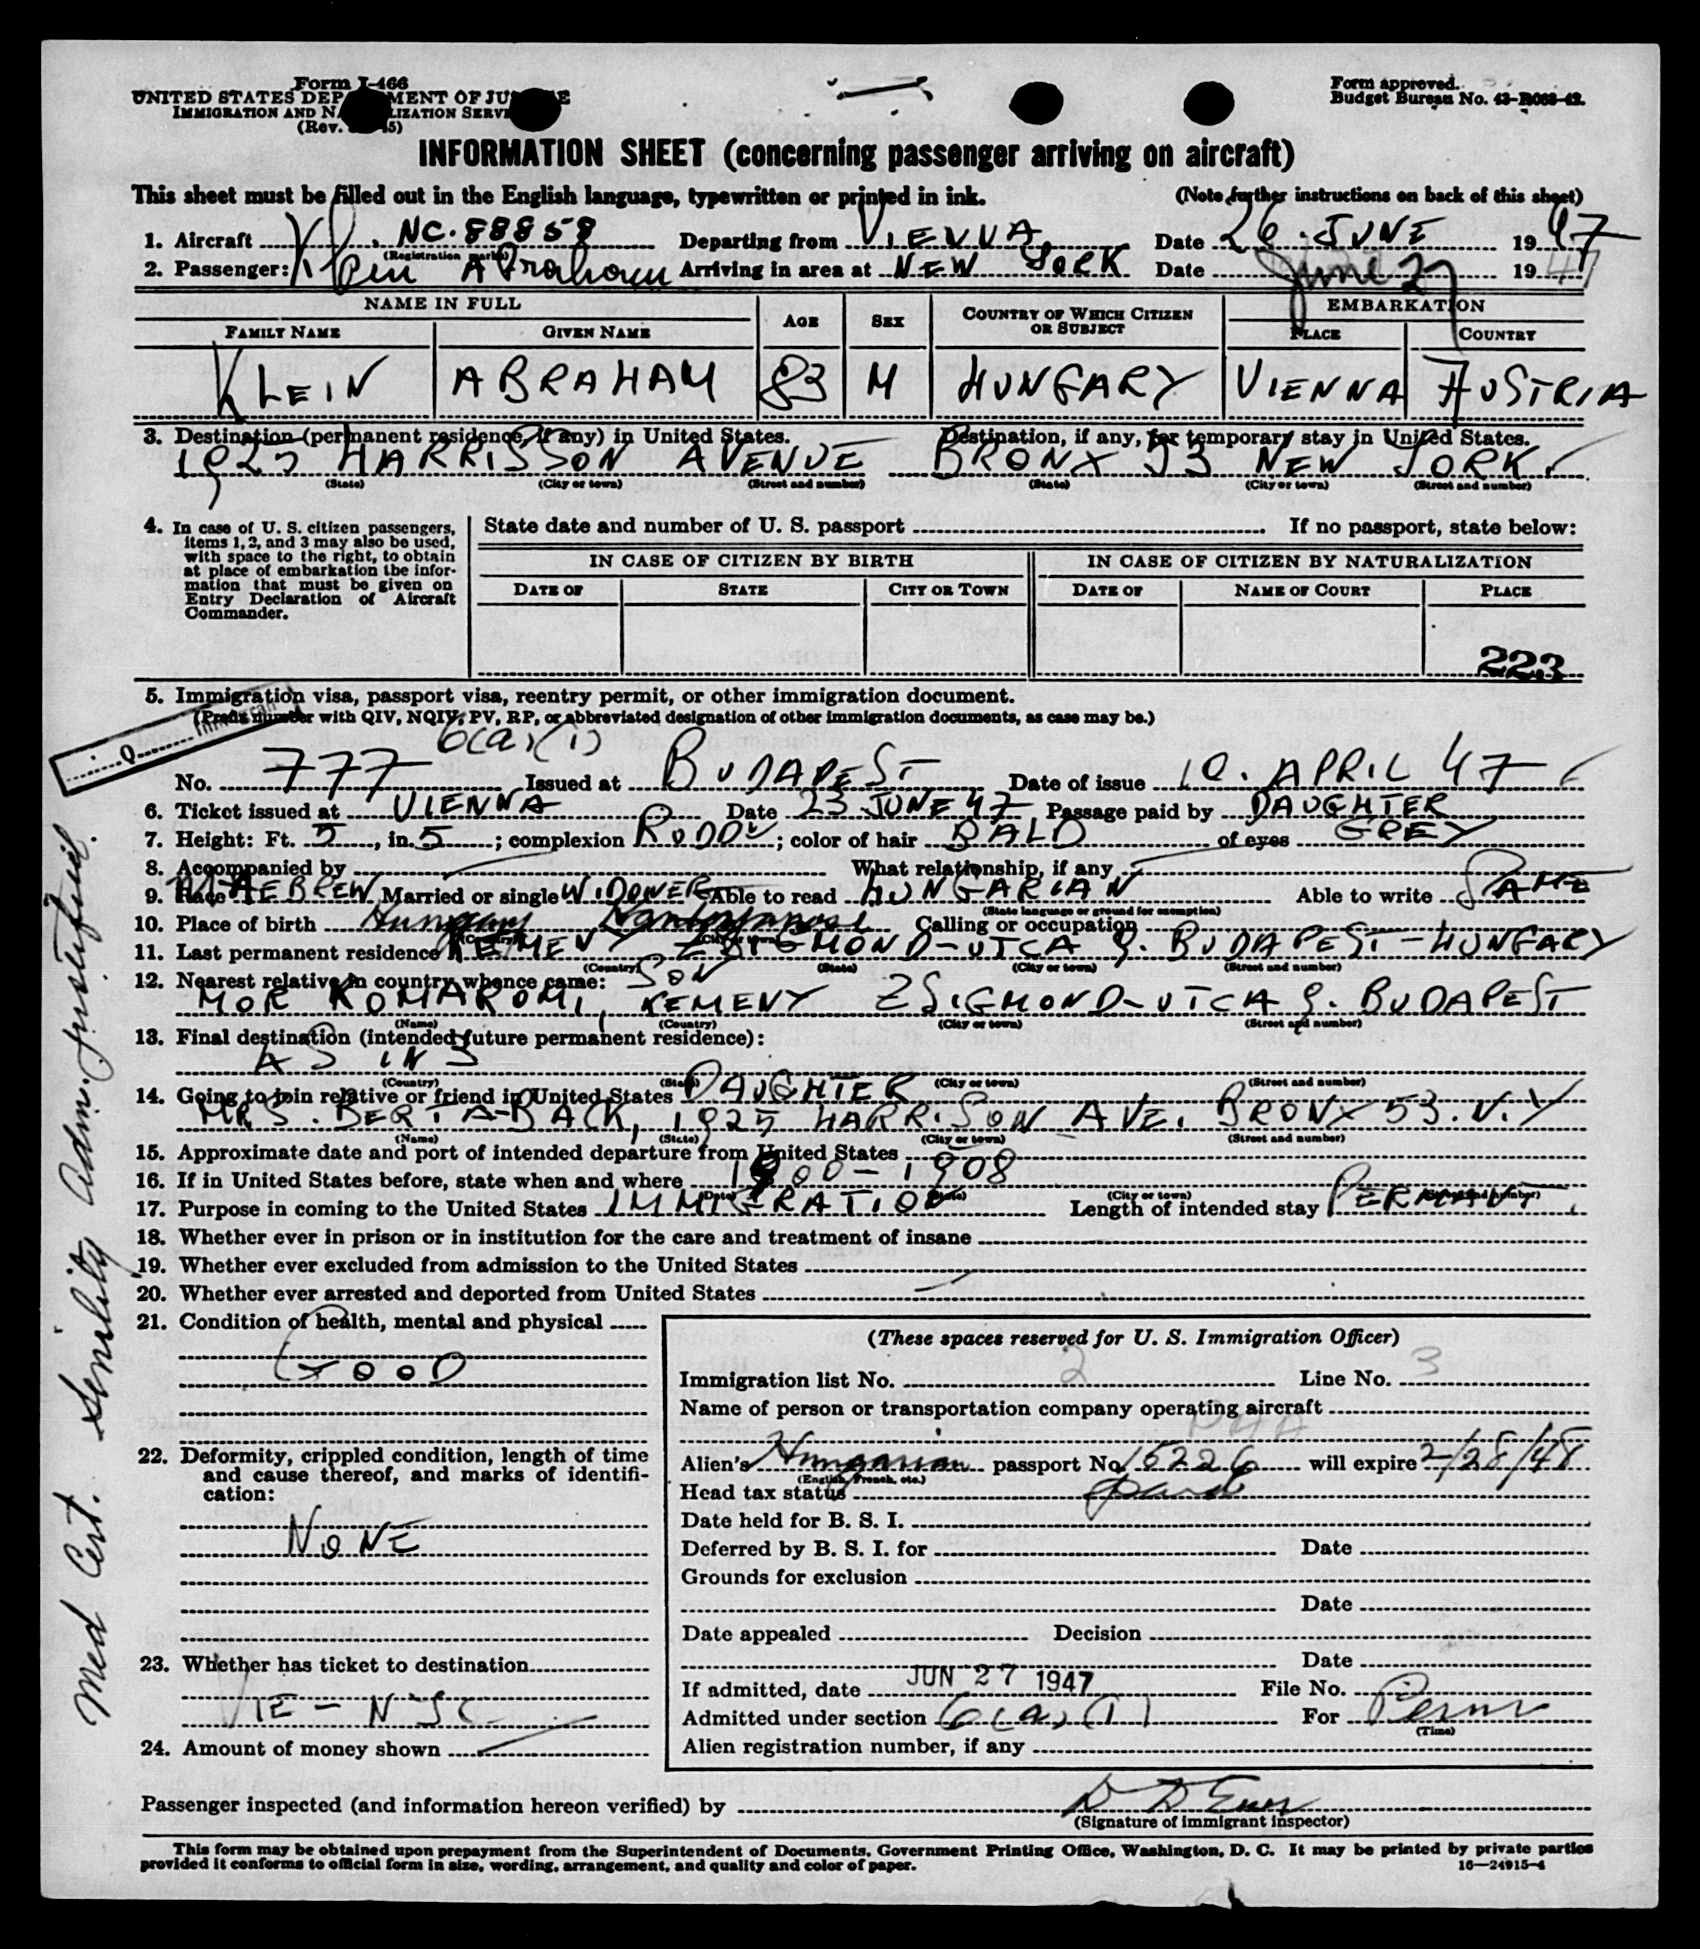 Form I-466
UNITED STATES DEPARTMENT OF JUSTICE
IMMIGRATION AND NATURALIZATION SERVICE
(Rev. 45)
Form approved.
Budget Bureau No. 43-R063-42.
INFORMATION SHEET (concerning passenger arriving on aircraft)
This sheet must be filled out in the English language, typewritten or printed in ink. (Note further instructions on back of this sheet)
1. Aircraft NC.88858 Departing from VIENNA Date 26. JUNE 1947
(Registration marks)
2. Passenger: Klein Abraham Arriving in area at NEW YORK Date June 27 1947
NAME IN FULL AGE SEX COUNTRY OF WHICH CITIZEN OR SUBJECT EMBARKATION
FAMILY NAME GIVEN NAME PLACE COUNTRY
KLEIN ABRAHAM 83 M HUNGARY VIENNA AUSTRIA
3. Destination (permanent residence, if any) in United States. Destination, if any, for temporary stay in United States.
1925 HARRISSON AVENUE BRONX 53 NEW YORK
(State) (City or town) (Street and number) (State) (City or town) (Street and number)
4. In case of U. S. citizen passengers, items 1, 2, and 3 may also be used, with space to the right, to obtain at place of embarkation the information that must be given on Entry Declaration of Aircraft Commander.
State date and number of U. S. passport If no passport, state below:
IN CASE OF CITIZEN BY BIRTH IN CASE OF CITIZEN BY NATURALIZATION
DATE OF STATE CITY OR TOWN DATE OF NAME OF COURT PLACE
223
5. Immigration visa, passport visa, reentry permit, or other immigration document.
(Prefix number with QIV, NQIV, PV, RP, or abbreviated designation of other immigration documents, as case may be.)
6(a)(1)
No. 777 Issued at BUDAPEST Date of issue 10. APRIL 47
6. Ticket issued at VIENNA Date 23 JUNE 47 Passage paid by DAUGHTER
7. Height: Ft. 5, in. 5; complexion RUDDY; color of hair BALD of eyes GREY
8. Accompanied by What relationship, if any
9. Race HEBREW Married or single WIDOWER Able to read HUNGARIAN Able to write SAME
(State language or ground for exemption)
10. Place of birth Hungary Calling or occupation
11. Last permanent residence KEMENY ZSIGMOND-UTCA 9. BUDAPEST-HUNGARY
(Country) (State) (City or town) (Street and number)
12. Nearest relative in country whence came: SON
MOR KOMAROMI, KEMENY ZSIGMOND-UTCA 9. BUDAPEST
(Name) (Country) (City or town) (Street and number)
13. Final destination (intended future permanent residence):
AS IN 3
(Country) (State) (City or town) (Street and number)
14. Going to join relative or friend in United States DAUGHTER
MRS. BERTA BACK, 1925 HARRISON AVE. BRONX 53. N.Y
(Name) (State) (City or town) (Street and number)
15. Approximate date and port of intended departure from United States
16. If in United States before, state when and where 1900-1908
(Date) (State) (City or town) (Street and number)
17. Purpose in coming to the United States IMMIGRATION Length of intended stay PERMANT
18. Whether ever in prison or in institution for the care and treatment of insane
19. Whether ever excluded from admission to the United States
20. Whether ever arrested and deported from United States
21. Condition of health, mental and physical
GOOD
22. Deformity, crippled condition, length of time and cause thereof, and marks of identification:
NONE
23. Whether has ticket to destination
VIE - NYC
24. Amount of money shown
(These spaces reserved for U. S. Immigration Officer)
Immigration list No. 2 Line No. 3
Name of person or transportation company operating aircraft
PAA
Alien's Hungarian passport No. 15226 will expire 2/28/48
(English, French, etc.)
Head tax status paid
Date held for B. S. I.
Deferred by B. S. I. for Date
Grounds for exclusion
Date
Date appealed Decision
Date
If admitted, date JUN 27 1947 File No.
Admitted under section 6(a)(1) For Perm
(Time)
Alien registration number, if any
Passenger inspected (and information hereon verified) by
(Signature of immigrant inspector)
This form may be obtained upon prepayment from the Superintendent of Documents, Government Printing Office, Washington, D. C. It may be printed by private parties
provided it conforms to official form in size, wording, arrangement, and quality and color of paper. 16—24915-4
Med Cert. Senility Adm.